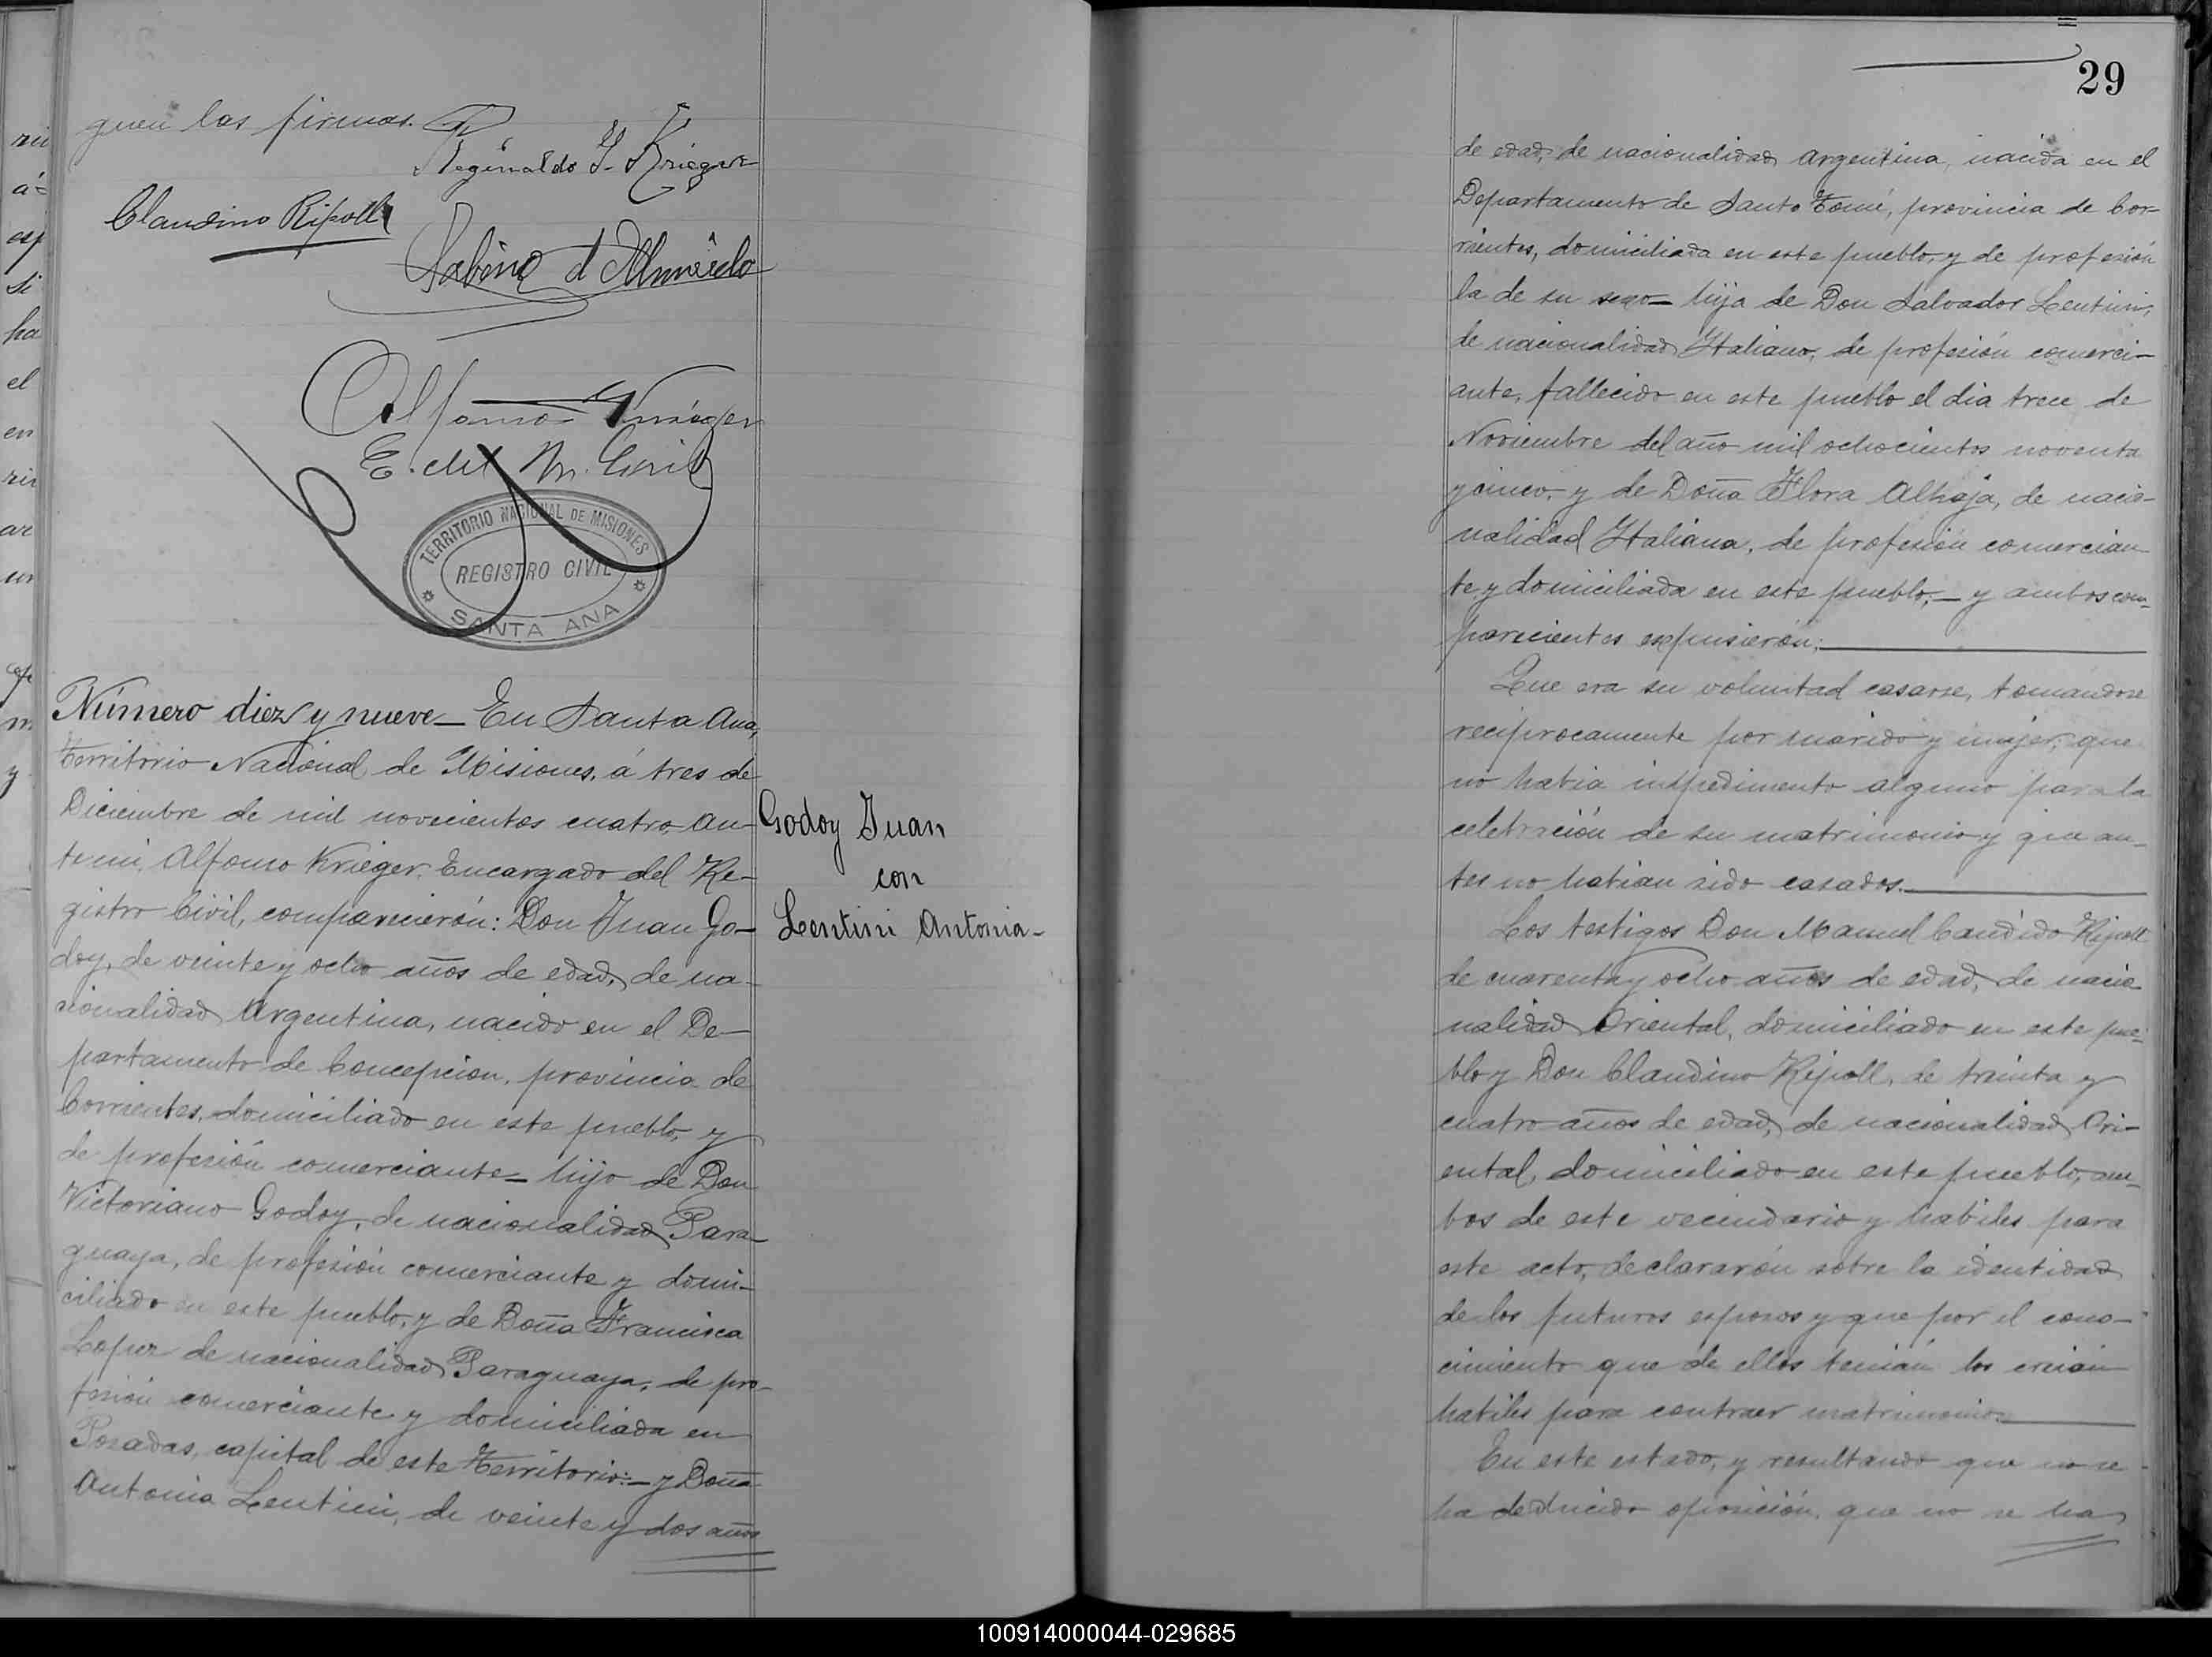 guen las firmas.
Reginaldo J. Krieger
Claudino Ripoll
Sabino d Almeida
Alfonso Krieger
E. del R. Civil
TERRITORIO NACIONAL DE MISIONES
REGISTRO CIVIL
SANTA ANA
Número diez y nueve_ En Santa Ana,
Territorio Nacional de Misiones, á tres de
Diciembre de mil novecientos cuatro, an-
te mi, Alfonso Krieger, Encargado del Re-
gistro Civil, comparecierón: Don Juan Go-
doy, de veinte y ocho años de edad, de na-
cionalidad Argentina, nacido en el De-
partamento de Concepcion, provincia de
Corrientes, domiciliado en este pueblo, y
de profesión comerciante_ hijo de Don
Victoriano Godoy, de nacionalidad Para-
guaya, de profesión comerciante y domi-
ciliado en este pueblo, y de Doña Francisca
Lopez de nacionalidad Paraguaya, de pro-
fesión comerciante y domiciliada en
Posadas, capital de este Territorio:_ y Doña
Antonia Lentini, de veinte y dos años
Godoy Juan
con
Lentini Antonia-
29
de edad, de nacionalidad Argentina, nacida en el
Departamento de Santo Tomé, provincia de Cor-
rientes, domiciliada en este pueblo, y de profesión
la de su sexo_ hija de Don Salvador Lentini,
de nacionalidad Italiano, de profesión comerci-
ante, fallecido en este pueblo el dia trece de
Noviembre del año mil ochocientos noventa
y cinco, y de Doña Flora Alhaja, de nacio-
nalidad Italiana, de profesión comercian
te y domiciliada en este pueblo,_ y ambos com-
parecientes expusierón:
Que era su voluntad casarse, tomandose
reciprocamente por marido y mujer, que
no habia impedimento alguno para la
celebración de su matrimonio y que an-
tes no habian sido casados.
Los testigos Don Manuel Candido Ripoll
de cuarenta y ocho años de edad, de nacio-
nalidad Oriental, domiciliado en este pue-
blo y Don Claudino Ripoll, de treinta y
cuatro años de edad, de nacionalidad Ori-
ental, domiciliado en este pueblo, am-
bos de este vecindario y habiles para
este acto, declararón sobre la identidad
de los futuros esposos y que por el cono-
cimiento que de ellos tenián los creián
habiles para contraer matrimonio.
En este estado, y resultando que no se
ha deducido oposición, que no se ha
100914000044-029685